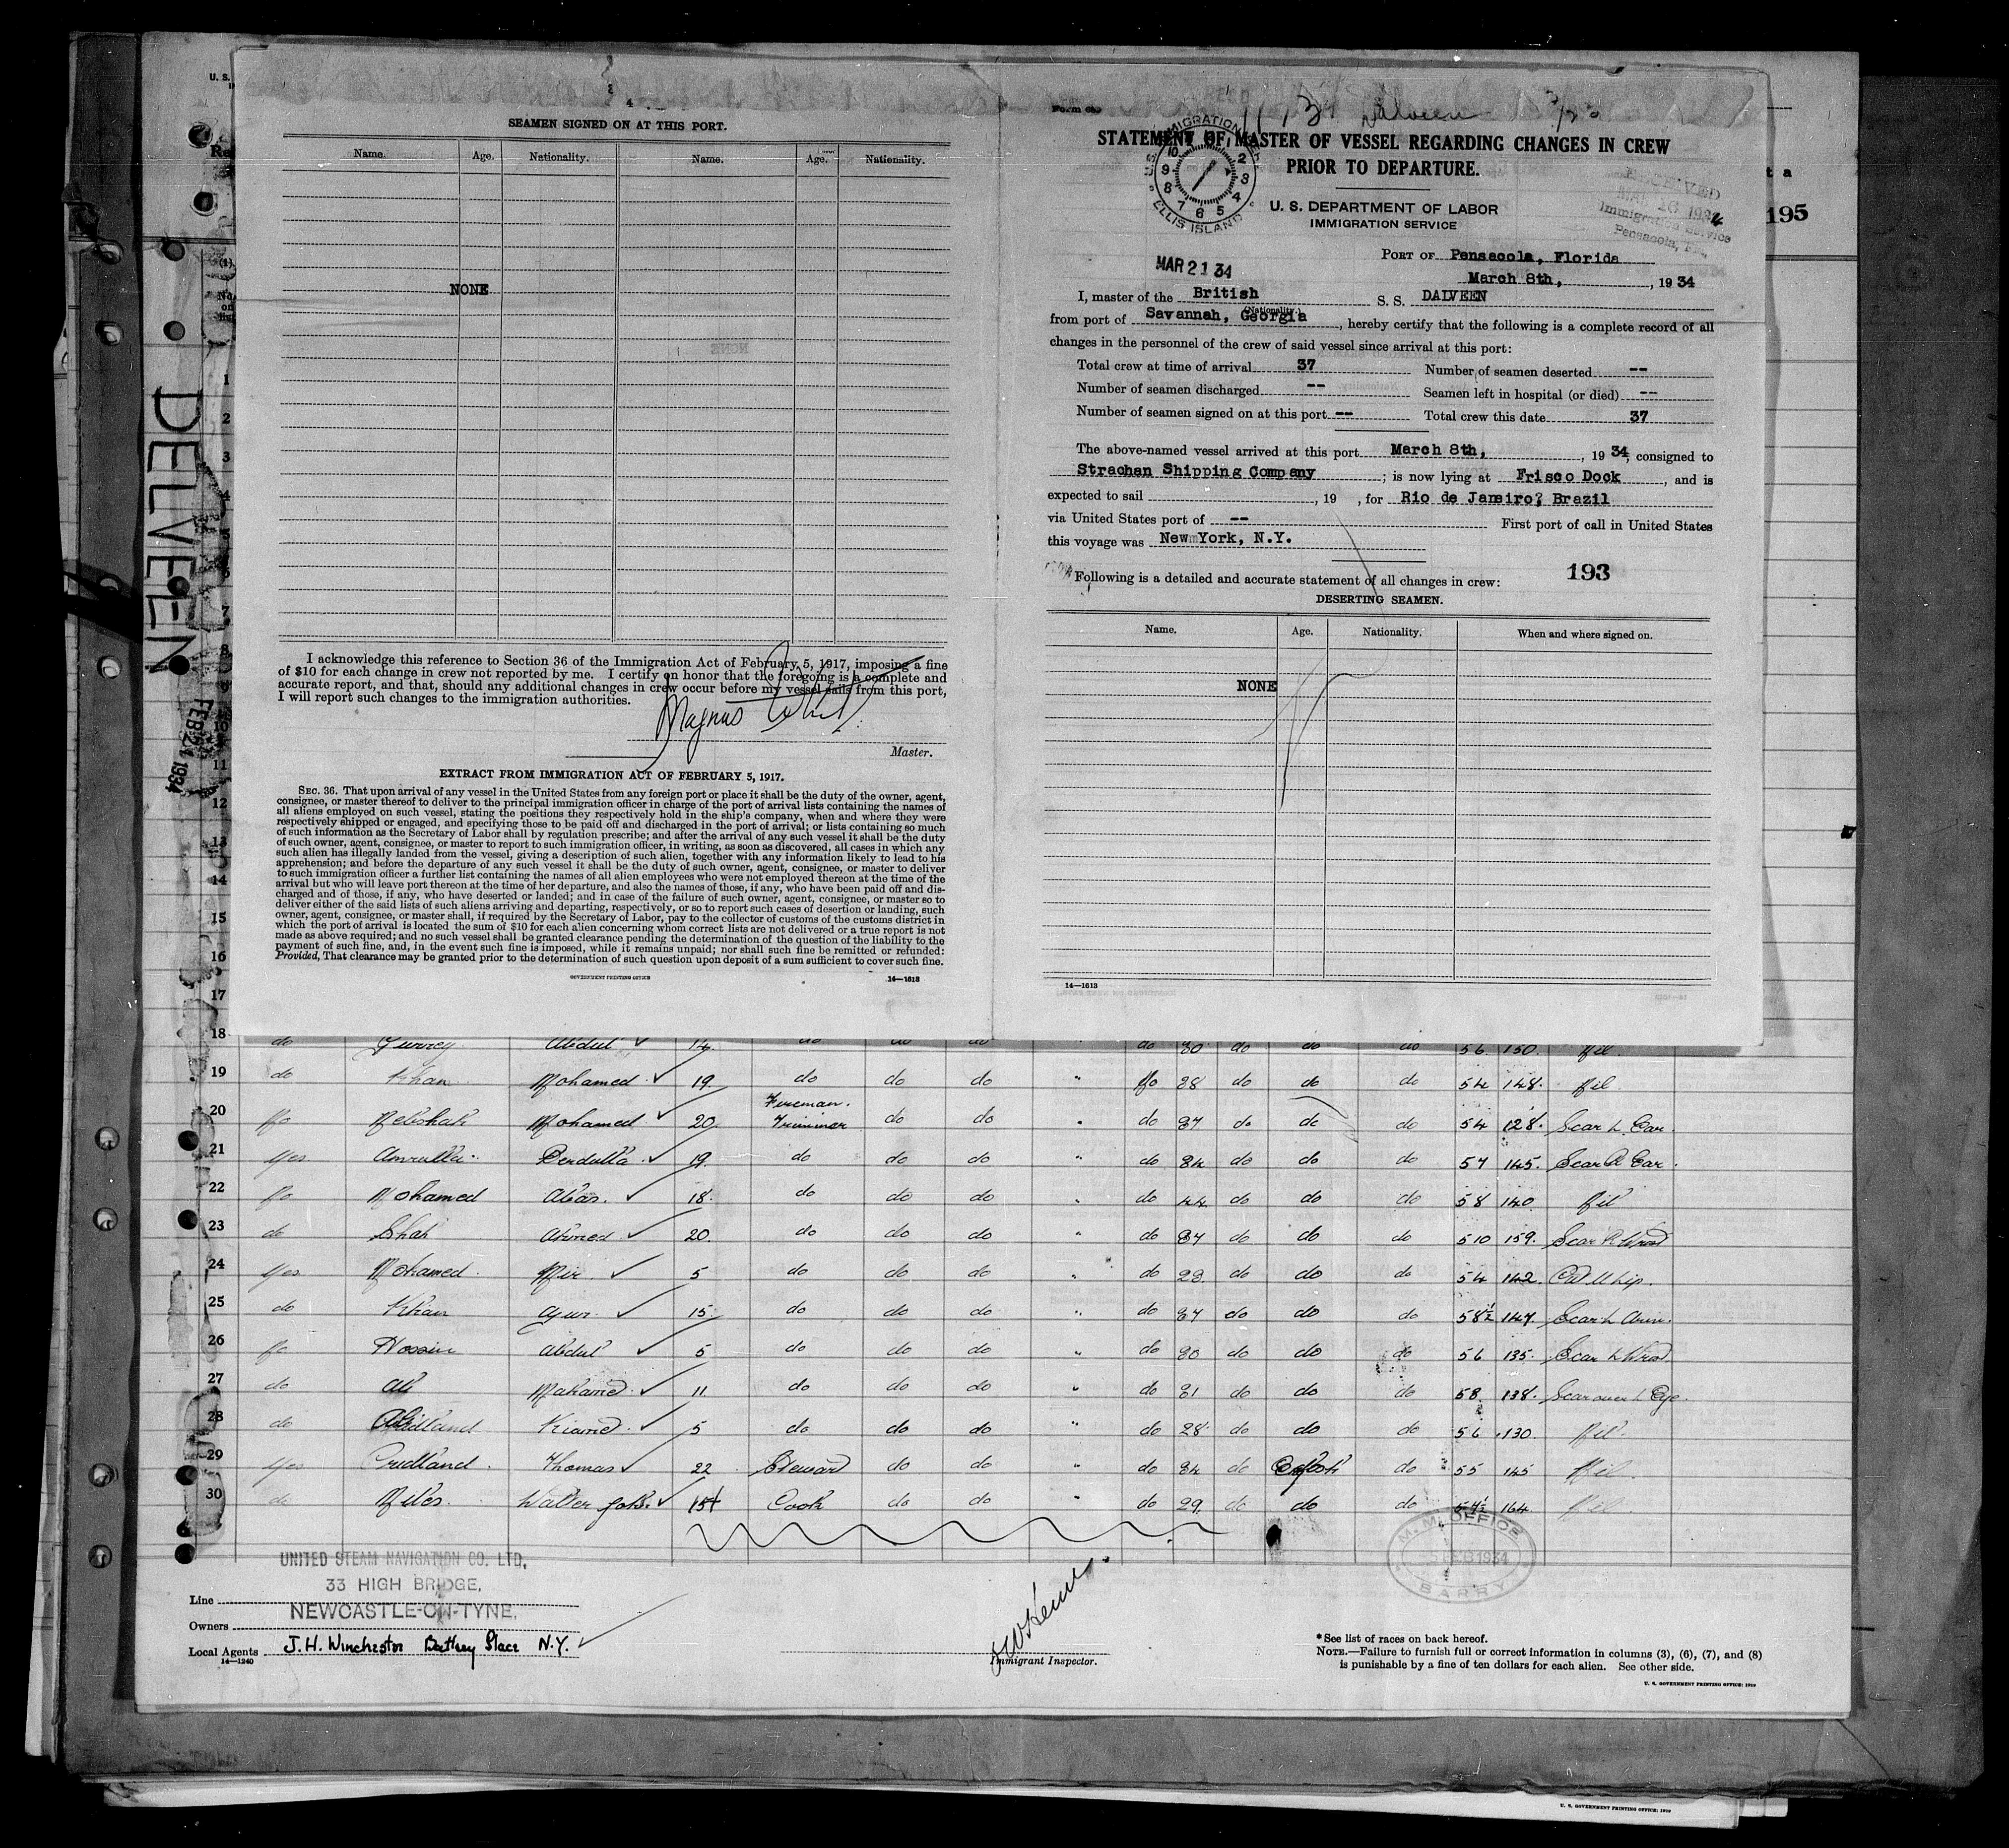 4
SEAMEN SIGNED ON AT THIS PORT.
Name. Age. Nationality. Name. Age. Nationality.
NONE
I acknowledge this reference to Section 36 of the Immigration Act of February 5, 1917, imposing a fine
of $10 for each change in crew not reported by me. I certify on honor that the foregoing is a complete and
accurate report, and that, should any additional changes in crew occur before my vessel sails from this port,
I will report such changes to the immigration authorities.
Magnus
Master.
EXTRACT FROM IMMIGRATION ACT OF FEBRUARY 5, 1917.
SEC. 36. That upon arrival of any vessel in the United States from any foreign port or place it shall be the duty of the owner, agent,
consignee, or master thereof to deliver to the principal immigration officer in charge of the port of arrival lists containing the names of
all aliens employed on such vessel, stating the positions they respectively hold in the ship's company, when and where they were
respectively shipped or engaged, and specifying those to be paid off and discharged in the port of arrival; or lists containing so much
of such information as the Secretary of Labor shall by regulation prescribe; and after the arrival of any such vessel it shall be the duty
of such owner, agent, consignee, or master to report to such immigration officer, in writing, as soon as discovered, all cases in which any
such alien has illegally landed from the vessel, giving a description of such alien, together with any information likely to lead to his
apprehension; and before the departure of any such vessel it shall be the duty of such owner, agent, consignee, or master to deliver
to such immigration officer a further list containing the names of all alien employees who were not employed thereon at the time of the
arrival but who will leave port thereon at the time of her departure, and also the names of those, if any, who have been paid off and dis-
charged and of those, if any, who have deserted or landed; and in case of the failure of such owner, agent, consignee, or master so to
deliver either of the said lists of such aliens arriving and departing, respectively, or so to report such cases of desertion or landing, such
owner, agent, consignee, or master shall, if required by the Secretary of Labor, pay to the collector of customs of the customs district in
which the port of arrival is located the sum of $10 for each alien concerning whom correct lists are not delivered or a true report is not
made as above required; and no such vessel shall be granted clearance pending the determination of the question of the liability to the
payment of such fine, and, in the event such fine is imposed, while it remains unpaid; nor shall such fine be remitted or refunded:
Provided, That clearance may be granted prior to the determination of such question upon deposit of a sum sufficient to cover such fine.
GOVERNMENT PRINTING OFFICE 14—1613
Dalveen
STATEMENT OF MASTER OF VESSEL REGARDING CHANGES IN CREW
PRIOR TO DEPARTURE.
U. S. DEPARTMENT OF LABOR
IMMIGRATION SERVICE
ELLIS ISLAND
MAR 21 34
RECEIVED
MAR 1934
Immigration Service
Pensacola, Fla.
195
PORT OF Pensacola, Florida
March 8th, , 19 34
I, master of the British S. S. DALVEEN
(Nationality.)
from port of Savannah, Georgia, hereby certify that the following is a complete record of all
changes in the personnel of the crew of said vessel since arrival at this port:
Total crew at time of arrival 37 Number of seamen deserted --
Number of seamen discharged -- Seamen left in hospital (or died) --
Number of seamen signed on at this port -- Total crew this date 37
The above-named vessel arrived at this port March 8th, , 19 34, consigned to
Strachan Shipping Company ; is now lying at Frisco Dock , and is
expected to sail , 19 , for Rio de Janeiro, Brazil
via United States port of -- First port of call in United States
this voyage was New York, N.Y.
193
Following is a detailed and accurate statement of all changes in crew:
DESERTING SEAMEN.
Name. Age. Nationality. When and where signed on.
NONE
14—1613
DELVEEN
FEB 21 1934
U. S.
1
2
3
4
5
6
7
8
9
10
11
12
13
14
15
16
17
18 do Abdul 14 do do do do 30 do do do 56 150. Nil
19 do Khan Mohamed 19 do do do " do 28 do do do 54 148. Nil
20 No Mohamed 20 Fireman. Trimmer do do " do 37 do do do 54 128. Scar L. Ear.
21 Yes 19 do do do " do 34 do do do 57 145. Scar R Ear.
22 No Mohamed 18 do do do " do 44 do do do 58 140 Nil
23 do Shah Ahmed 20. do do do " do 37 do do do 510 159. Scar R Wrist
24 Yes Mohamed Mir 5 do do do " do 28 do do do 54 142.
25 do Khan 15 do do do " do 37 do do do 58½ 147. Scar L Arm.
26 No Hossin Abdul 5 do do do " do 30 do do do 56 135. Scar L Wrist
27 do Ali 11 do do do " do 31 do do do 58 138. Scar over L Eye.
28 do 5 do do do " do 28 do do do 56 130. Nil.
29 Yes Prudland Thomas 22 Steward do do " do 34 do English do 55 145 Nil.
30 do Walter 15 Cook do do " do 29 do do do 164 Nil
M. M. OFFICE
FEB 1934
BARRY
UNITED STEAM NAVIGATION CO. LTD.
33 HIGH BRIDGE,
Line
NEWCASTLE-ON-TYNE.
Owners
Local Agents J.H. Winchester Battery Place N.Y.
14—1240
Immigrant Inspector.
* See list of races on back hereof.
NOTE.—Failure to furnish full or correct information in columns (3), (6), (7), and (8)
is punishable by a fine of ten dollars for each alien. See other side.
U. S. GOVERNMENT PRINTING OFFICE: 1929
U. S. GOVERNMENT PRINTING OFFICE: 1929